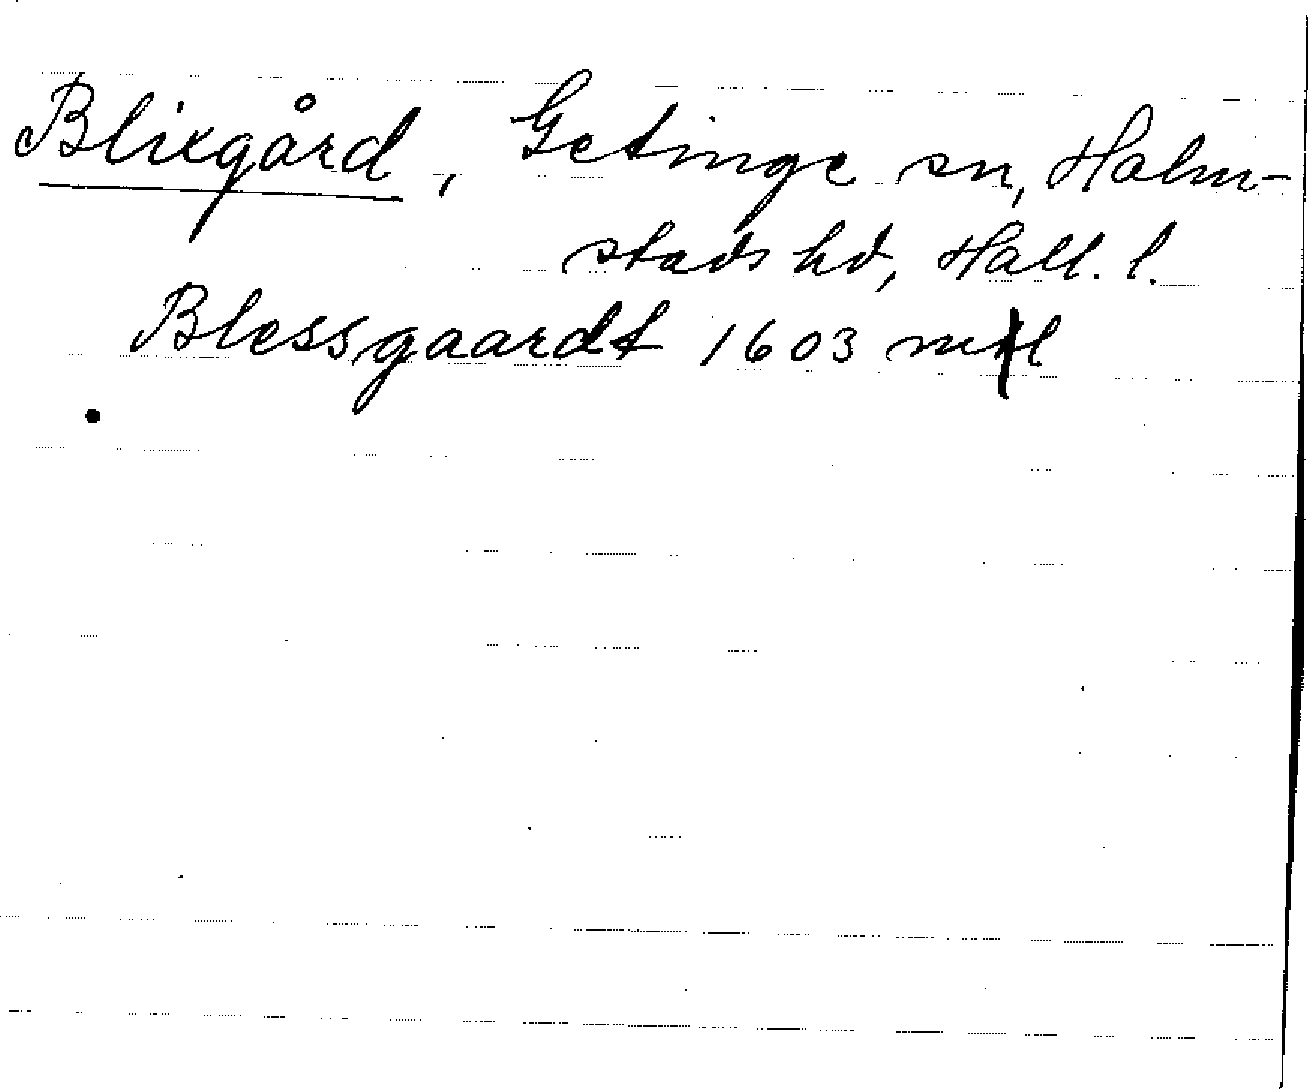 Blixgård, Getinge sn, Halm-
stads hd, Hall. l.
Blessgaardt 1603